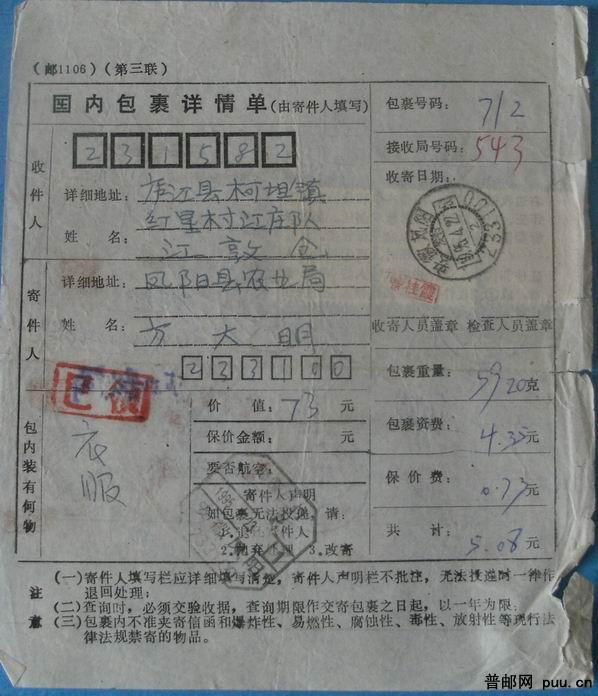 (邮1106)(第三联)
国内包裹详情单(由寄件人填写)
包裹号码: 712
231582
接收局号码: 543
收件人
详细地址: 庐江县柯坦镇
红星村江庄队
收寄日期:
姓 名: 江敦仓
233100
寄件人
详细地址: 凤阳县农业局
姓 名: 方大明
收寄人员盖章 检查人员盖章
233100
包裹重量: 5920克
包内装有何物
衣服
价 值: 73 元
保价金额: 元
包裹资费: 4.35元
要否航空:
保 价 费: 0.73元
寄件人声明
如包裹无法投递,请:
1.退还寄件人
2.抛弃处理 3.改寄
共 计: 5.08元
注意
(一)寄件人填写栏应详细填写清楚,寄件人声明栏不批注,无法投递时一律作
退回处理;
(二)查询时,必须交验收据,查询期限作交寄包裹之日起,以一年为限;
(三)包裹内不准夹寄信函和爆炸性、易燃性、腐蚀性、毒性、放射性等现行法
律法规禁寄的物品。
普邮网 puu.cn